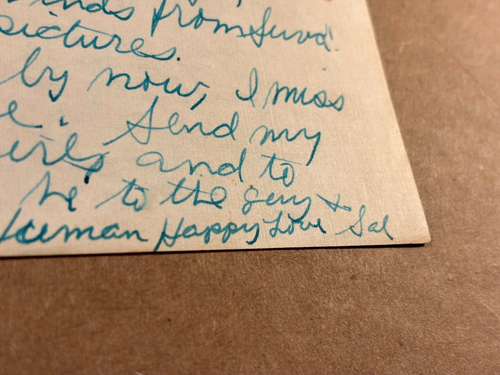 from Suva!
pictures.
by now, I miss
e. Send my
irls and to
to the guy &
Iceman Happy Love Sal